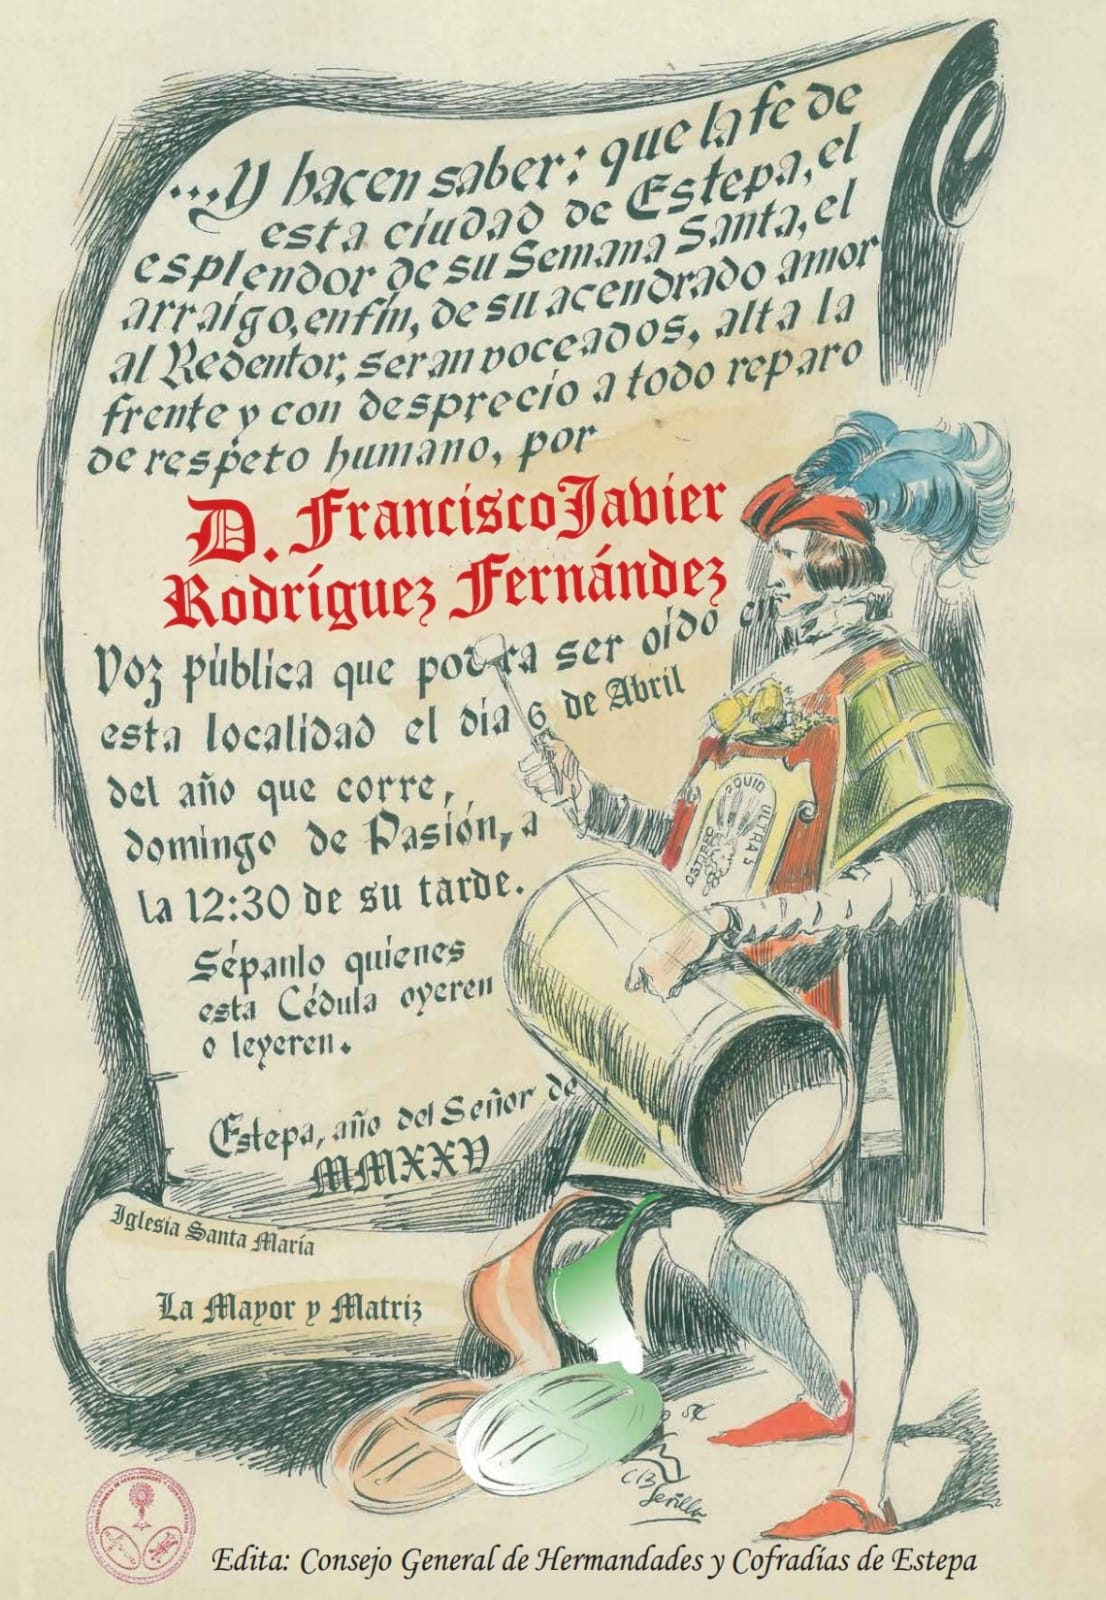 ...Y hacen saber: que la fe de
esta ciudad de Estepa, el
esplendor de su Semana Santa, el
arraigo, en fín, de su acendrado amor
al Redentor, seran voceados, alta la
frente y con desprecio a todo reparo
de respeto humano, por
D. Francisco Javier
Rodríguez Fernández
Voz pública que podra ser oído en
esta localidad el día 6 de Abril
del año que corre,
domingo de Pasión, a
la 12:30 de su tarde.
Sépanlo quienes
esta Cédula oyeren
o leyeren.
Estepa, año del Señor de
MMXXV
Iglesia Santa María
La Mayor y Matriz
OSTIPPO QUID ULTRA S
CB
Sevilla
Edita: Consejo General de Hermandades y Cofradías de Estepa